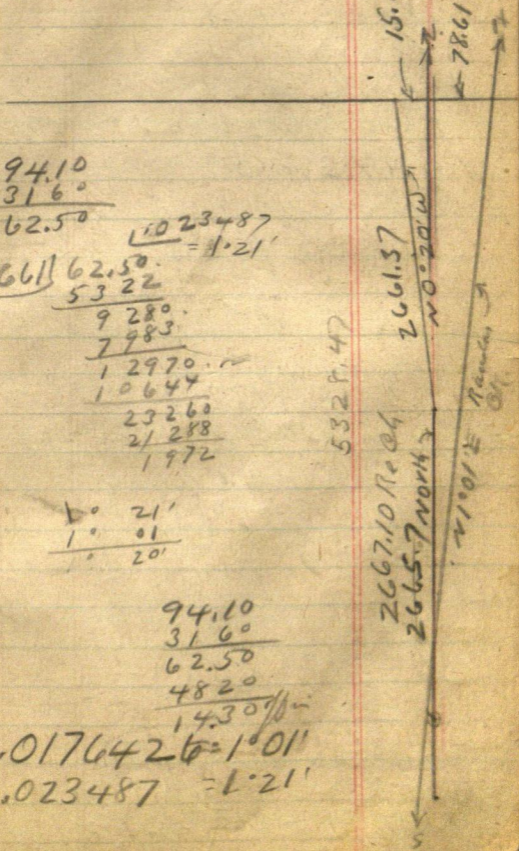 94.10
31 60
62.50
.023487
= 1°21'
661 62.50.
5322
9 280.
7 983
1 2970.
1 0644
23260
21 288
1 972
1° 21'
1° 01
20'
94.10
31 60
62.50
48 20
14.30
.0176426 = 1°01'
.023487 = 1°21'
15.
Z
78.61
2661.37
N 0°20' W
5328.47
2667.10 ReCh
2665.7 North
N 1°01' E
Random
S